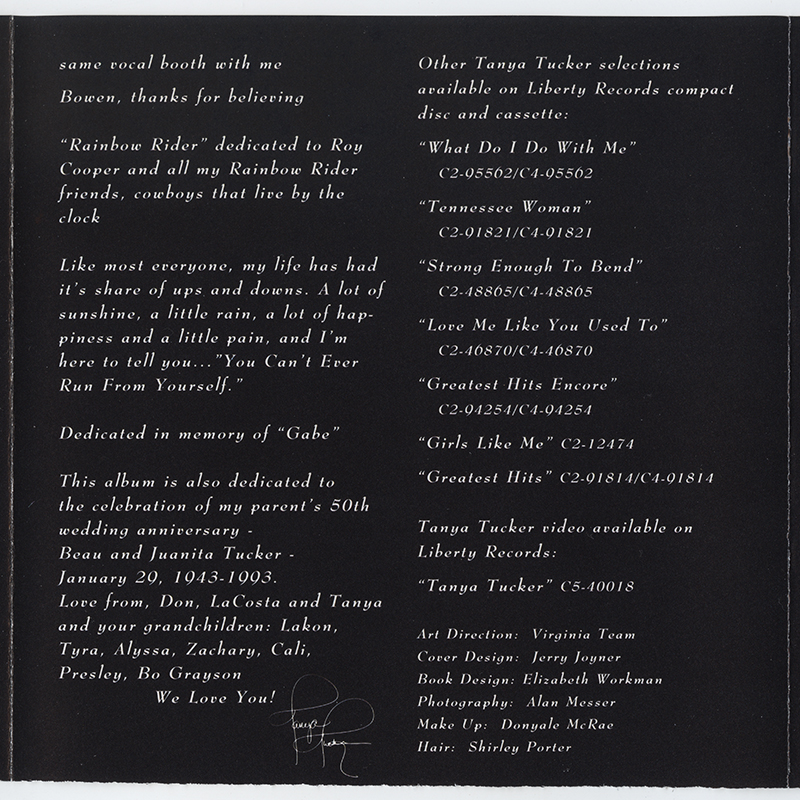 same vocal booth with me
Bowen, thanks for believing
"Rainbow Rider" dedicated to Roy
Cooper and all my Rainbow Rider
friends, cowboys that live by the
clock
Like most everyone, my life has had
it's share of ups and downs. A lot of
sunshine, a little rain, a lot of hap-
piness and a little pain, and I'm
here to tell you..."You Can't Ever
Run From Yourself."
Dedicated in memory of "Gabe"
This album is also dedicated to
the celebration of my parent's 50th
wedding anniversary -
Beau and Juanita Tucker -
January 29, 1943-1993.
Love from, Don, LaCosta and Tanya
and your grandchildren: Lakon,
Tyra, Alyssa, Zachary, Cali,
Presley, Bo Grayson
We Love You!
Tanya
Tucker
Other Tanya Tucker selections
available on Liberty Records compact
disc and cassette:
"What Do I Do With Me"
C2-95562/C4-95562
"Tennessee Woman"
C2-91821/C4-91821
"Strong Enough To Bend"
C2-48865/C4-48865
"Love Me Like You Used To"
C2-46870/C4-46870
"Greatest Hits Encore"
C2-94254/C4-94254
"Girls Like Me" C2-12474
"Greatest Hits" C2-91814/C4-91814
Tanya Tucker video available on
Liberty Records:
"Tanya Tucker" C5-40018
Art Direction: Virginia Team
Cover Design: Jerry Joyner
Book Design: Elizabeth Workman
Photography: Alan Messer
Make Up: Donyale McRae
Hair: Shirley Porter